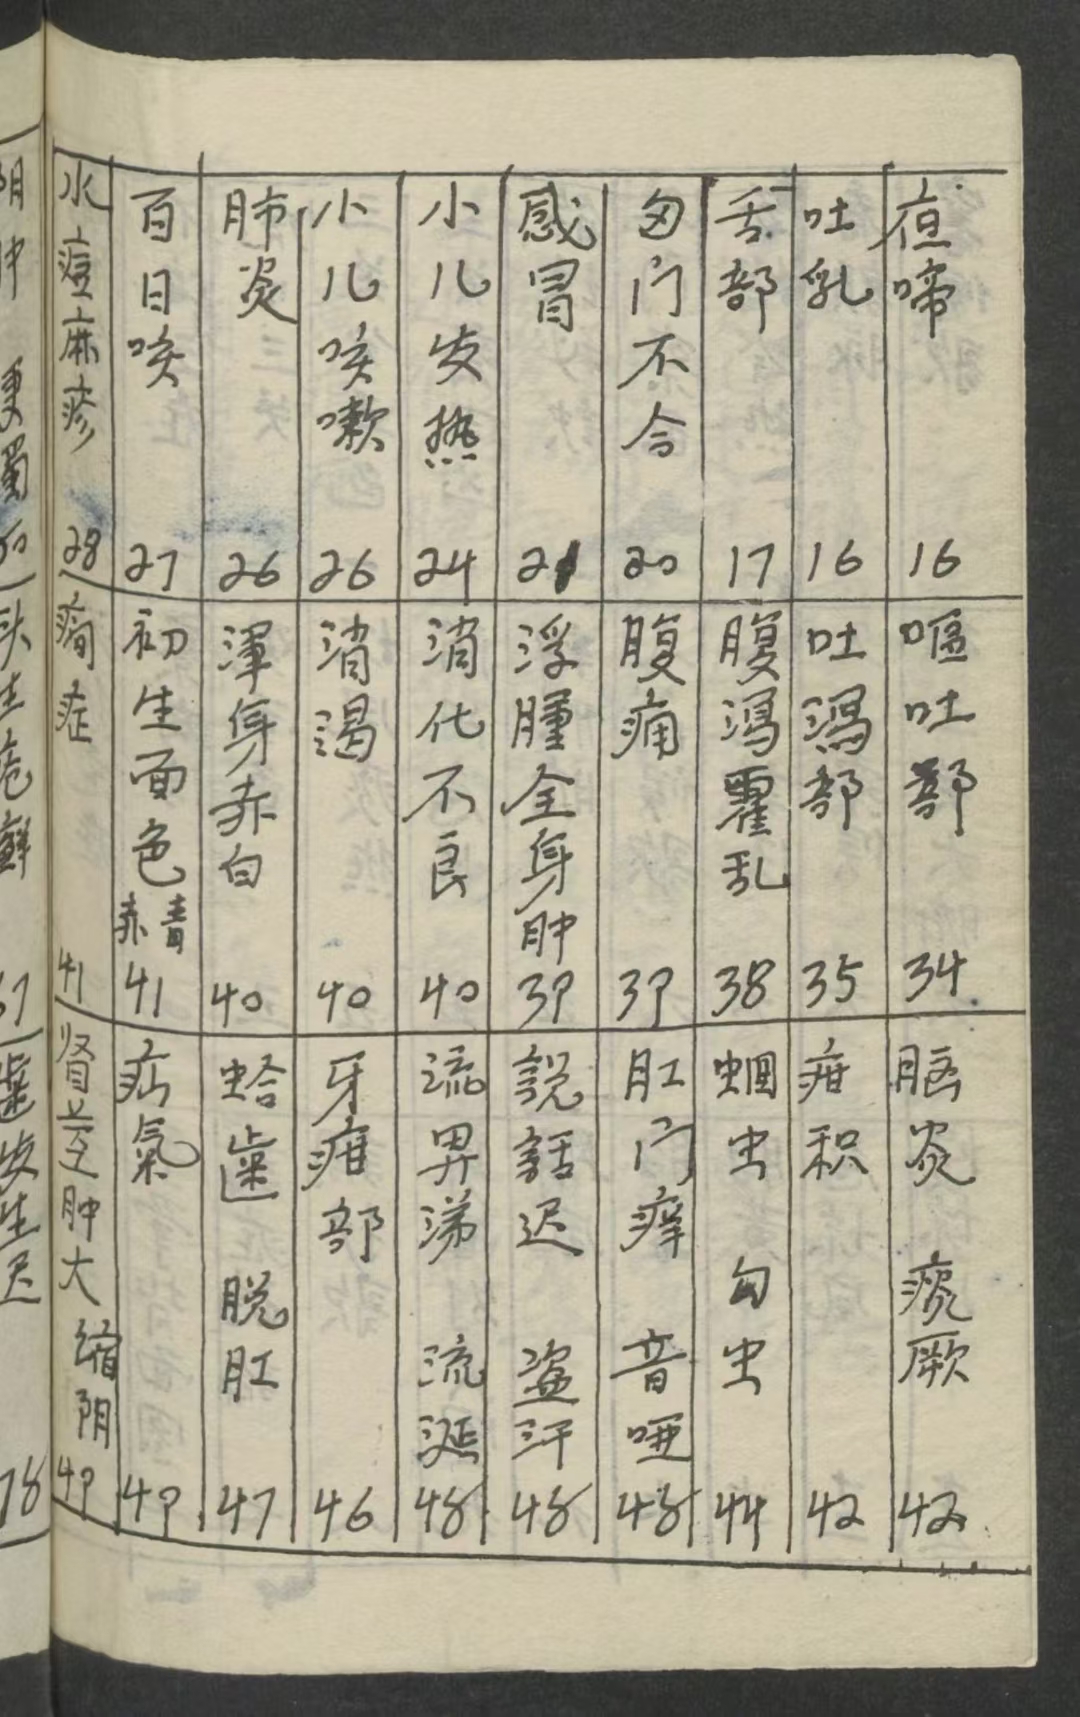 夜啼 16
吐乳 16
舌部 17
囟门不合 20
感冒 21
小儿发热 24
小儿咳嗽 26
肺炎 26
百日咳 27
水痘麻疹 28
呕吐部 34
吐瀉部 35
腹瀉霍乱 38
腹痛 39
浮腫全身肿 39
消化不良 40
消渴 40
渾身赤白 40
初生面色青赤 41
癎症 41
脑炎 痰厥 42
疳积 42
蛔虫 勾虫 44
肛门痒 音哑 48
説話迟 盗汗 48
流鼻涕 流涎 48
牙疳部 46
蛤齒 脱肛 47
疝氣 49
肾茎肿大 缩阴 49